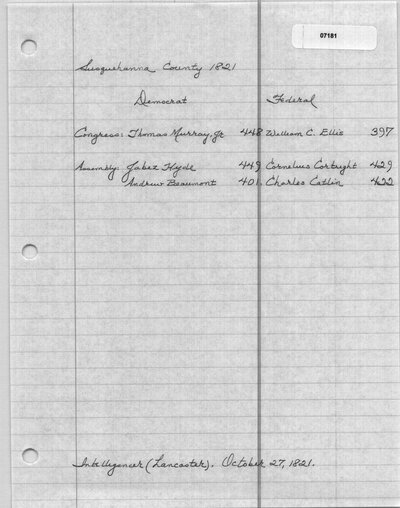 07181
Susquehanna County 1821
Democrat Federal
Congress: Thomas Murray, Jr 448 William C. Ellis 397
Assembly: Jabez Hyde 449 Cornelius Cortright 429
Andrew Beaumont 401. Charles Catlin 422
Intelligencer (Lancaster). October 27, 1821.